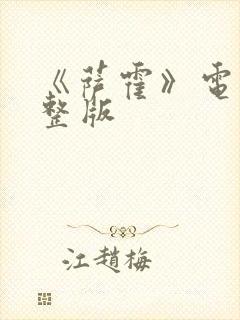 《萨霍》電
整版
江趙梅